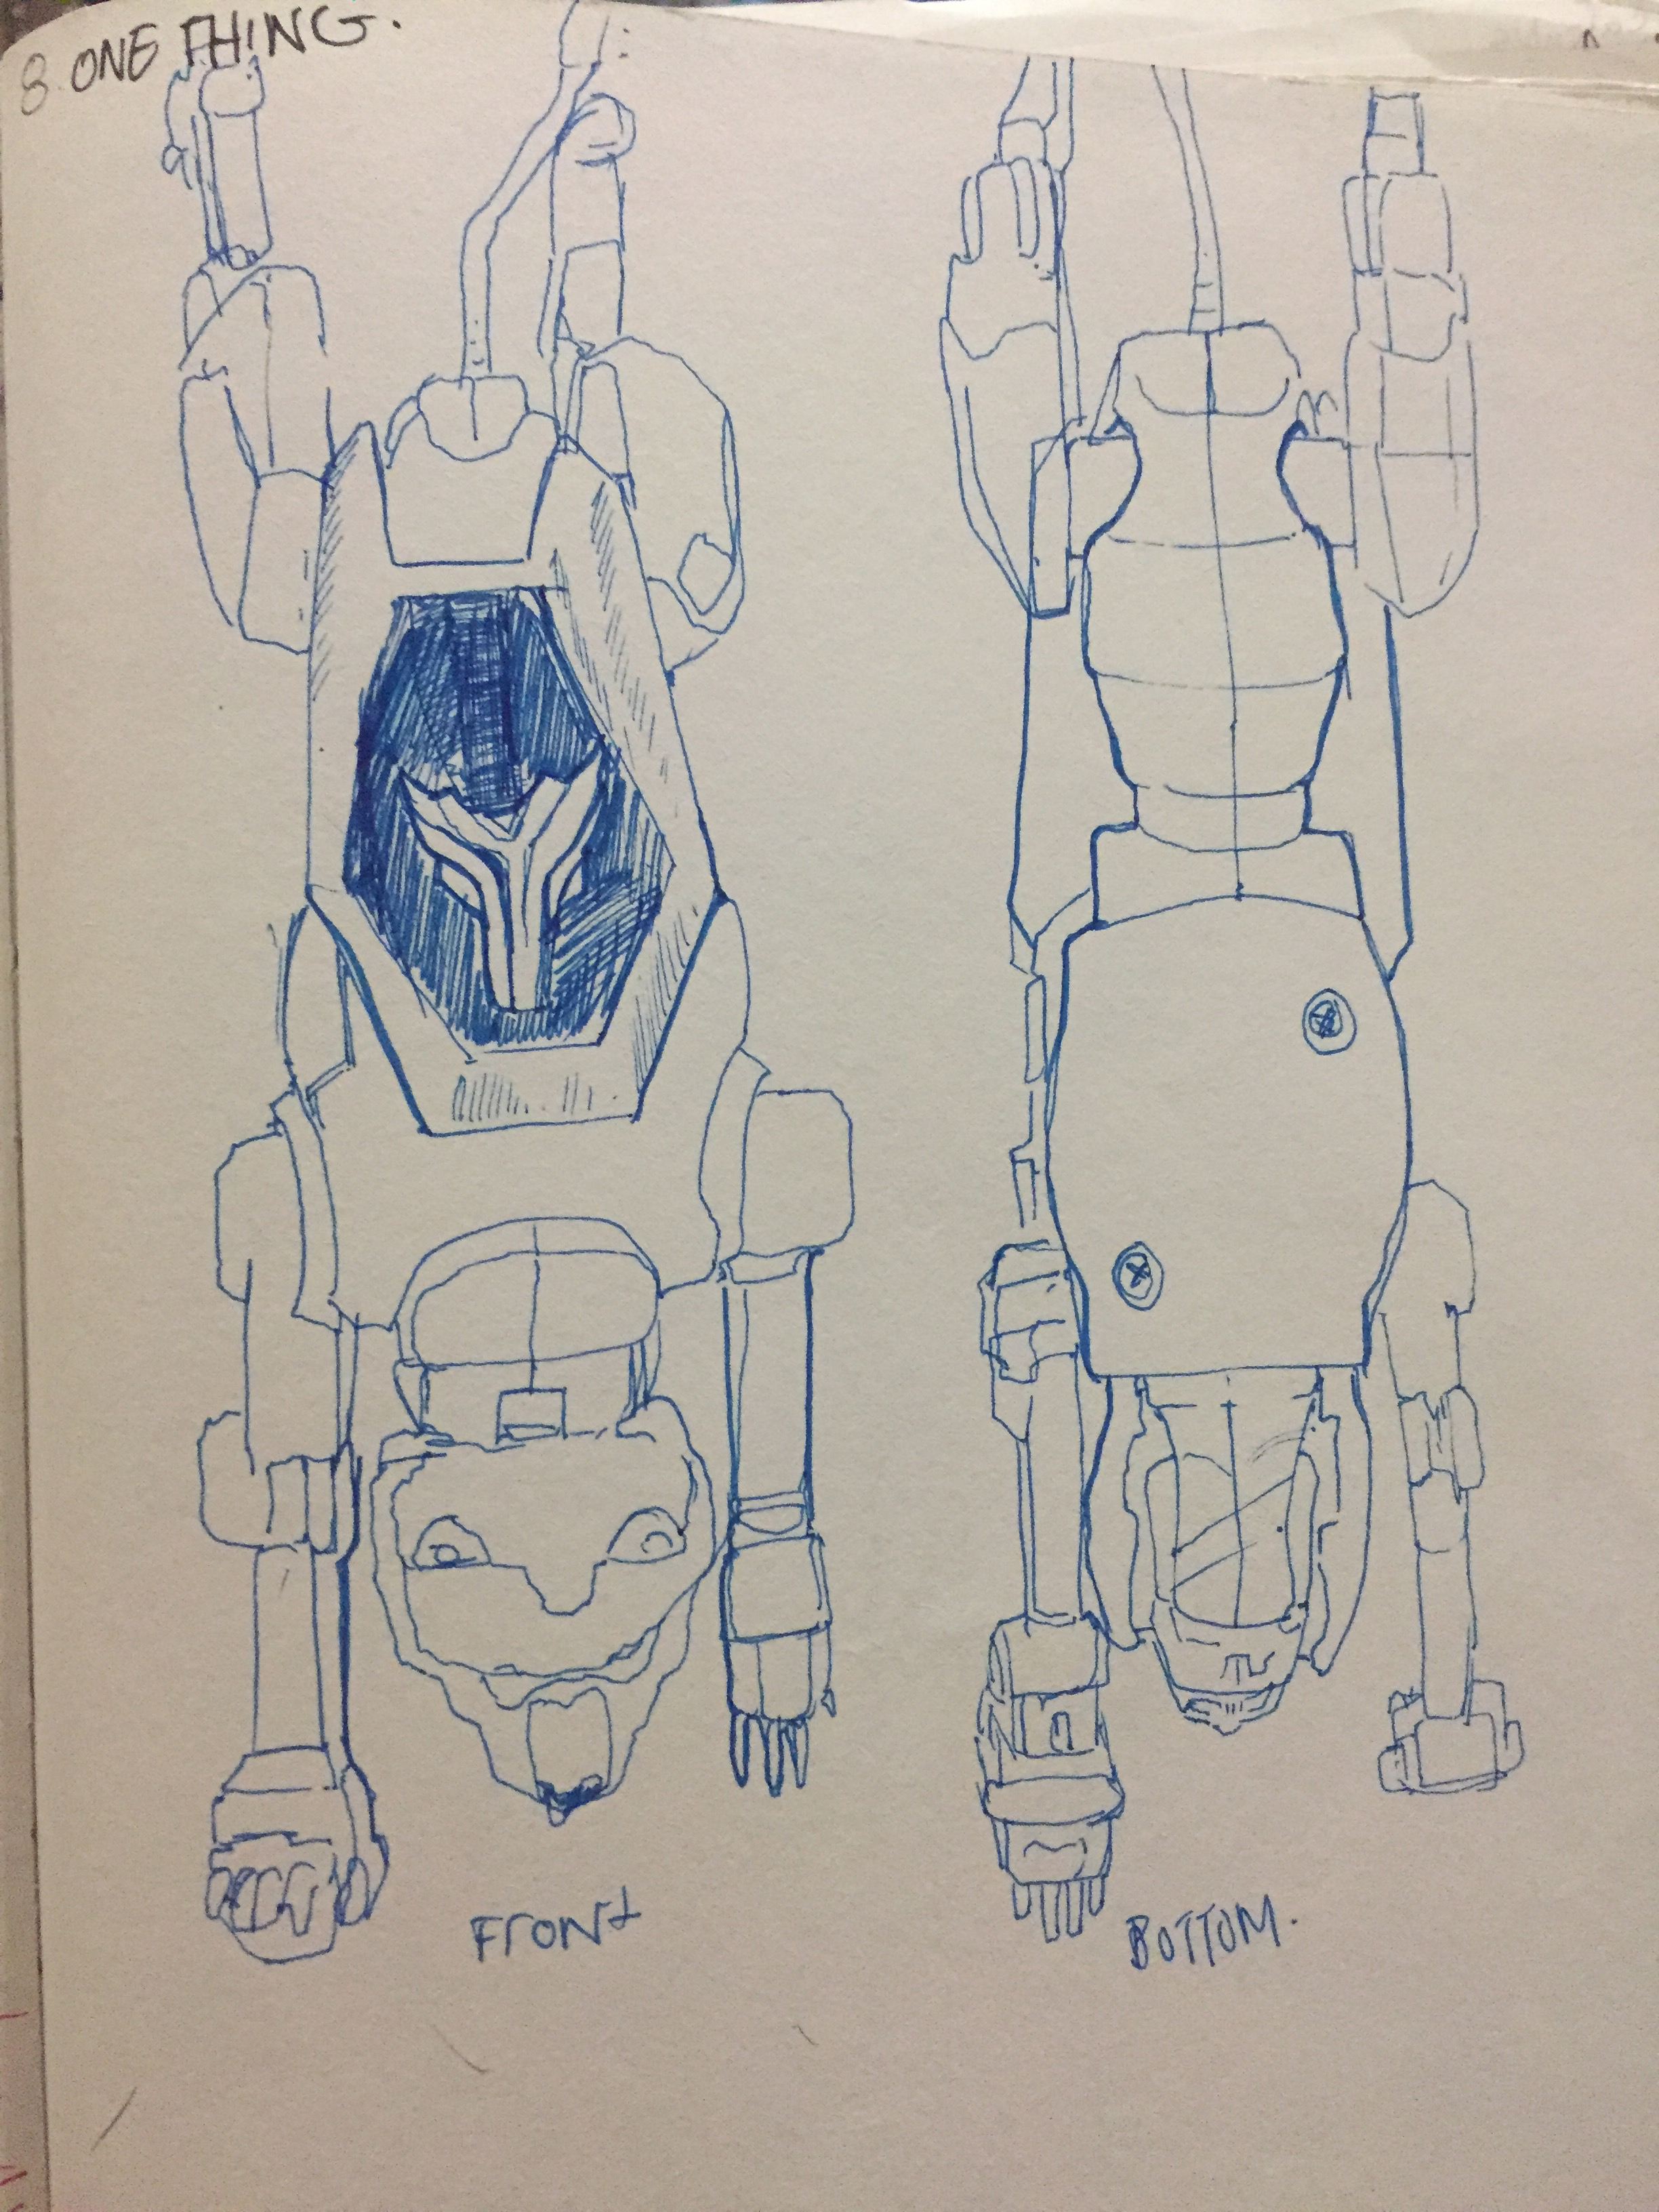 8. ONE THING.
FRONT
BOTTOM.